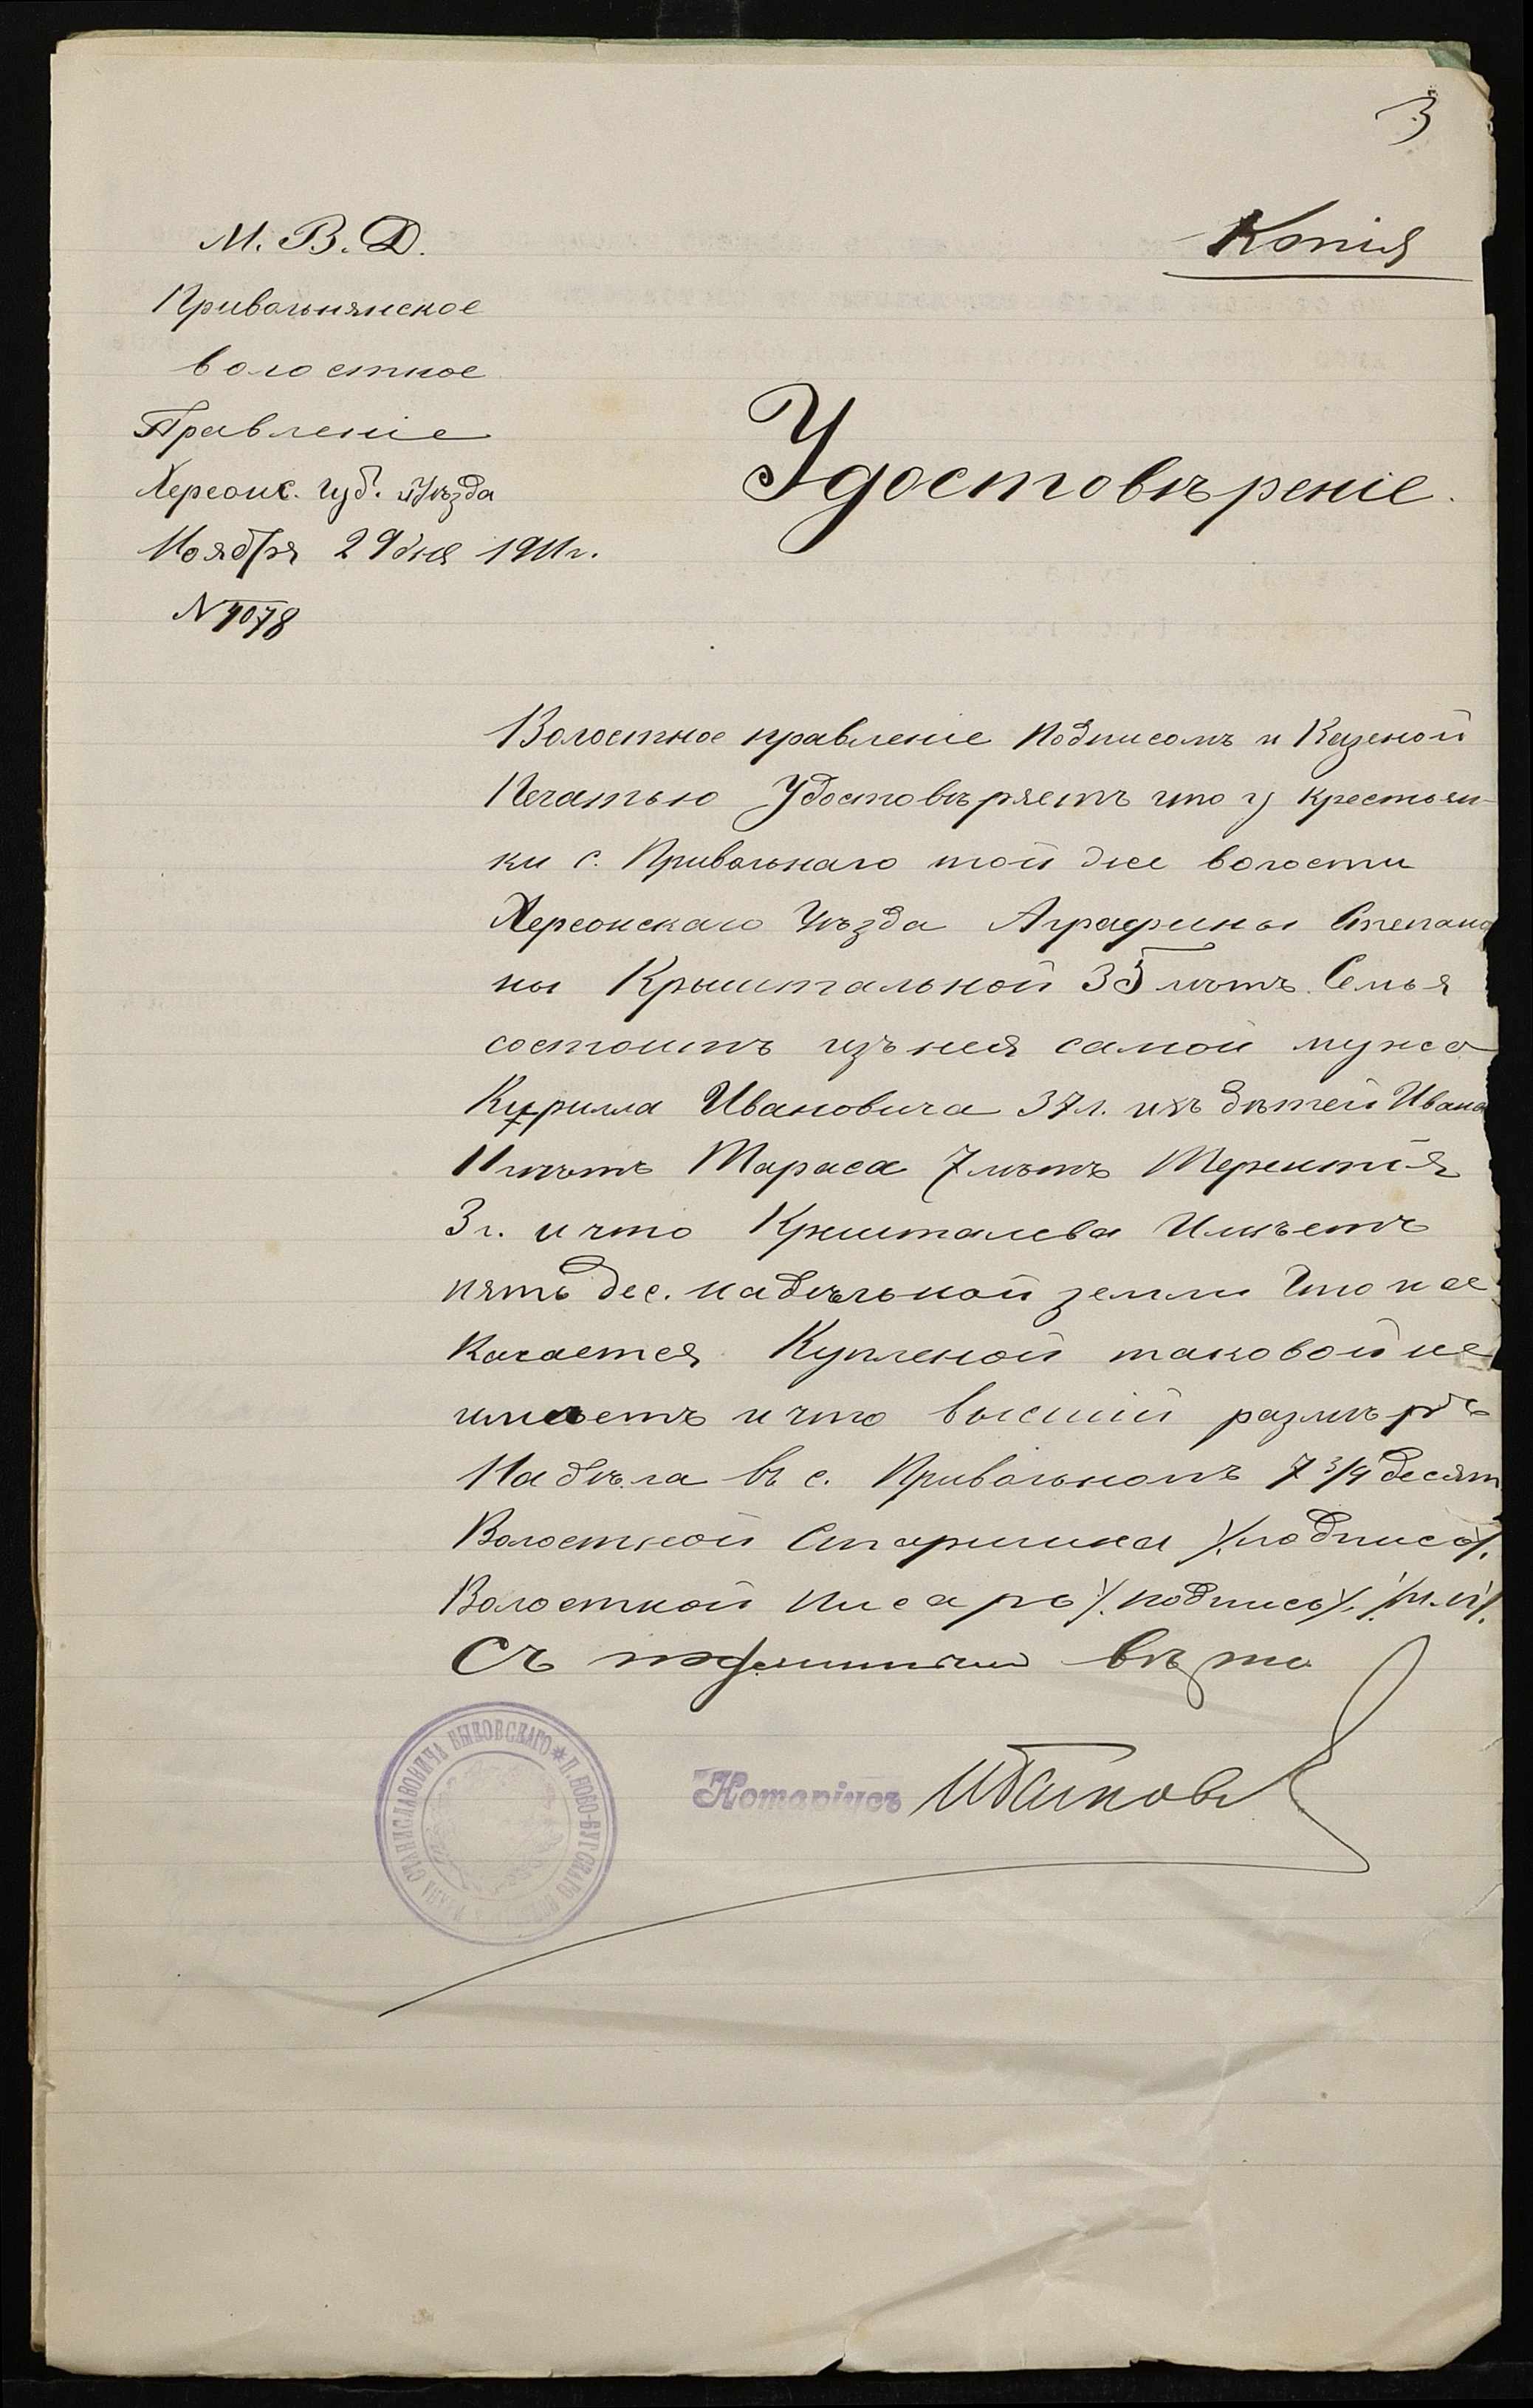 3
Копія
М. В. Д.
Привольнянское
волостное
Правленіе
Херсонс. губ. и уѣзда
Ноября 29 дня 1911 г.
N 4078
Удостовѣреніе.
Волостное правленіе Подписомъ и Казеной
Печатью Удостовѣряетъ что у крестьян-
ки с. Привольнаго той же волости
Херсонскаго Уѣзда Аграфины Степано
ны Крыштальной 35 лѣтъ Семья
состоитъ изъ нея самой мужа
Кирилла Ивановича 37 л. ихъ дѣтей Ивана
11 лѣтъ Тараса 7 лѣтъ Терентія
3 г. и что Кришталева Имѣетъ
пять дес. надѣльной земли Что же
Касается Купленой таковой не
имѣетъ и что высшій размѣръ
Надѣла въ с. Привольномъ 7 3/4 десят
Волостной Старшина /подпись/.
Волостной Писарь /подпись/. /м.п/.
Съ подлиннымъ вѣрно
Нотаріусъ
СТАНИСЛАВОВИЧА ВЫКОВСКАГО * П. НОВО-БУГСКАГО